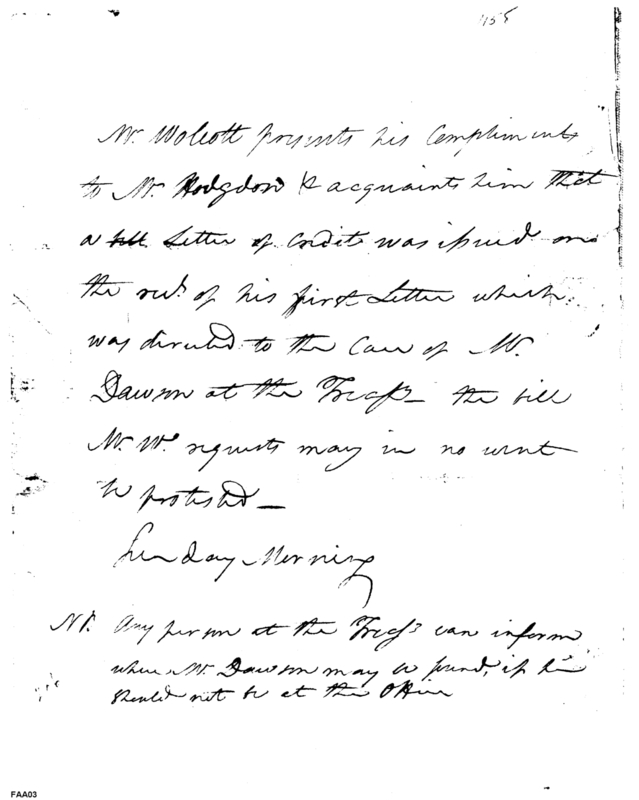 455
Mr. Wolcott presents his Compliments
to Mr. Hodgdon & acquaints him that
a bill Letter of Credit was issued on
the rect. of his first Letter which
was directed to the Care of Mr.
Dawson at the Treasy — the bill
Mr. W. requests may in no event
be protested —
Sunday Morning
NB. Any person at the Treasy can inform
where Mr. Dawson may be found, if he
should not be at the Office
FAA03